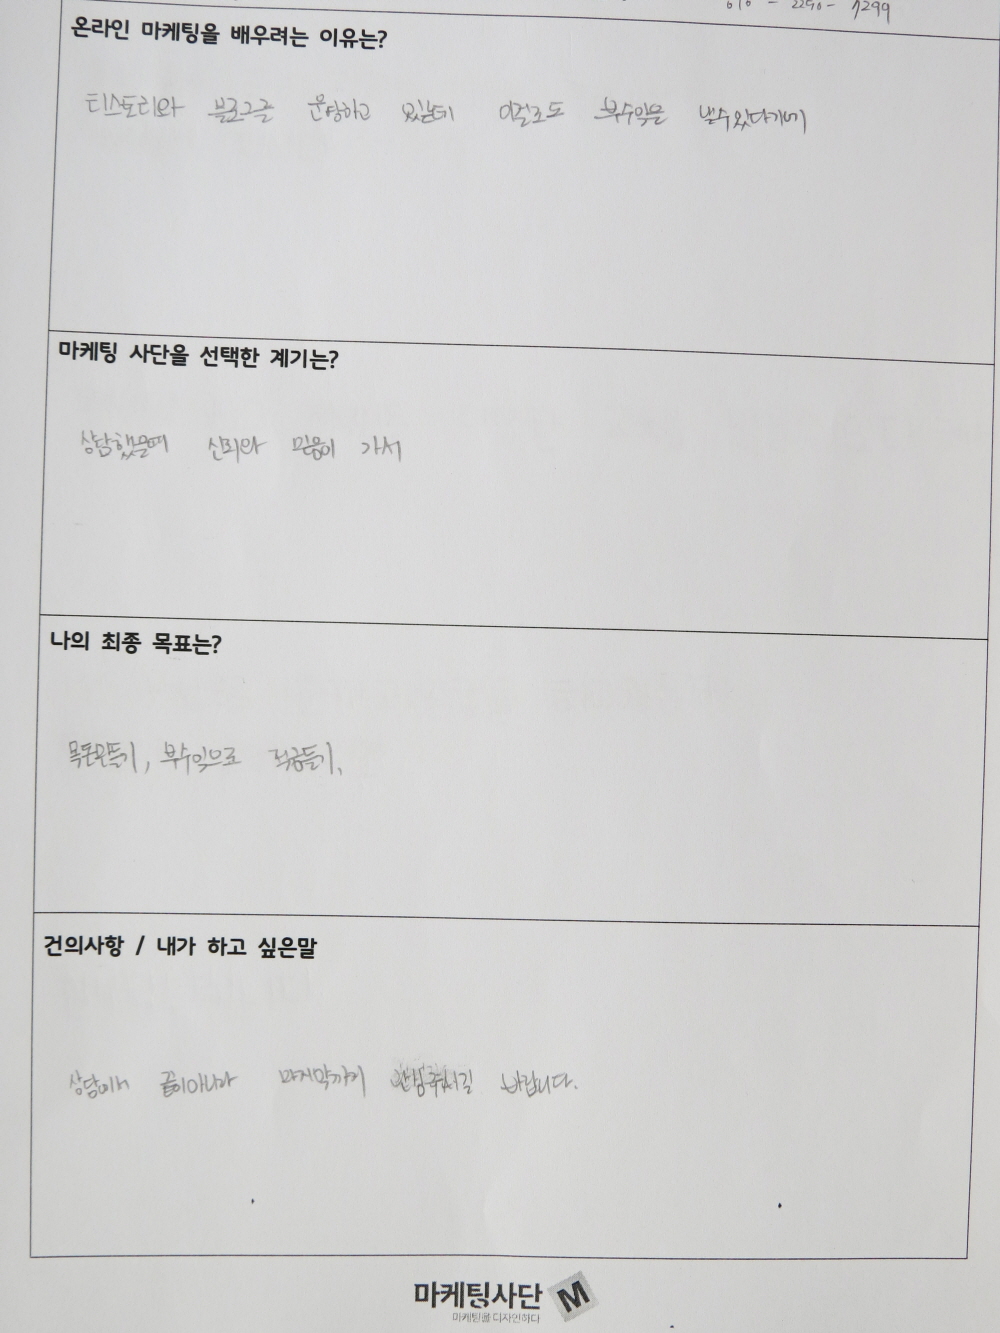 010 - 2290 - 7299
온라인 마케팅을 배우려는 이유는?
티스토리와 블로그를 운영하고 있는데 이걸로도 부수익을 낼수있다기에
마케팅 사단을 선택한 계기는?
상담했을때 신뢰와 믿음이 가서
나의 최종 목표는?
목돈만들기, 부수익으로 적금들기.
건의사항 / 내가 하고 싶은말
상담에서 끝이아니라 마지막까지 바랍니다.
마케팅사단 M
마케팅을 디자인하다